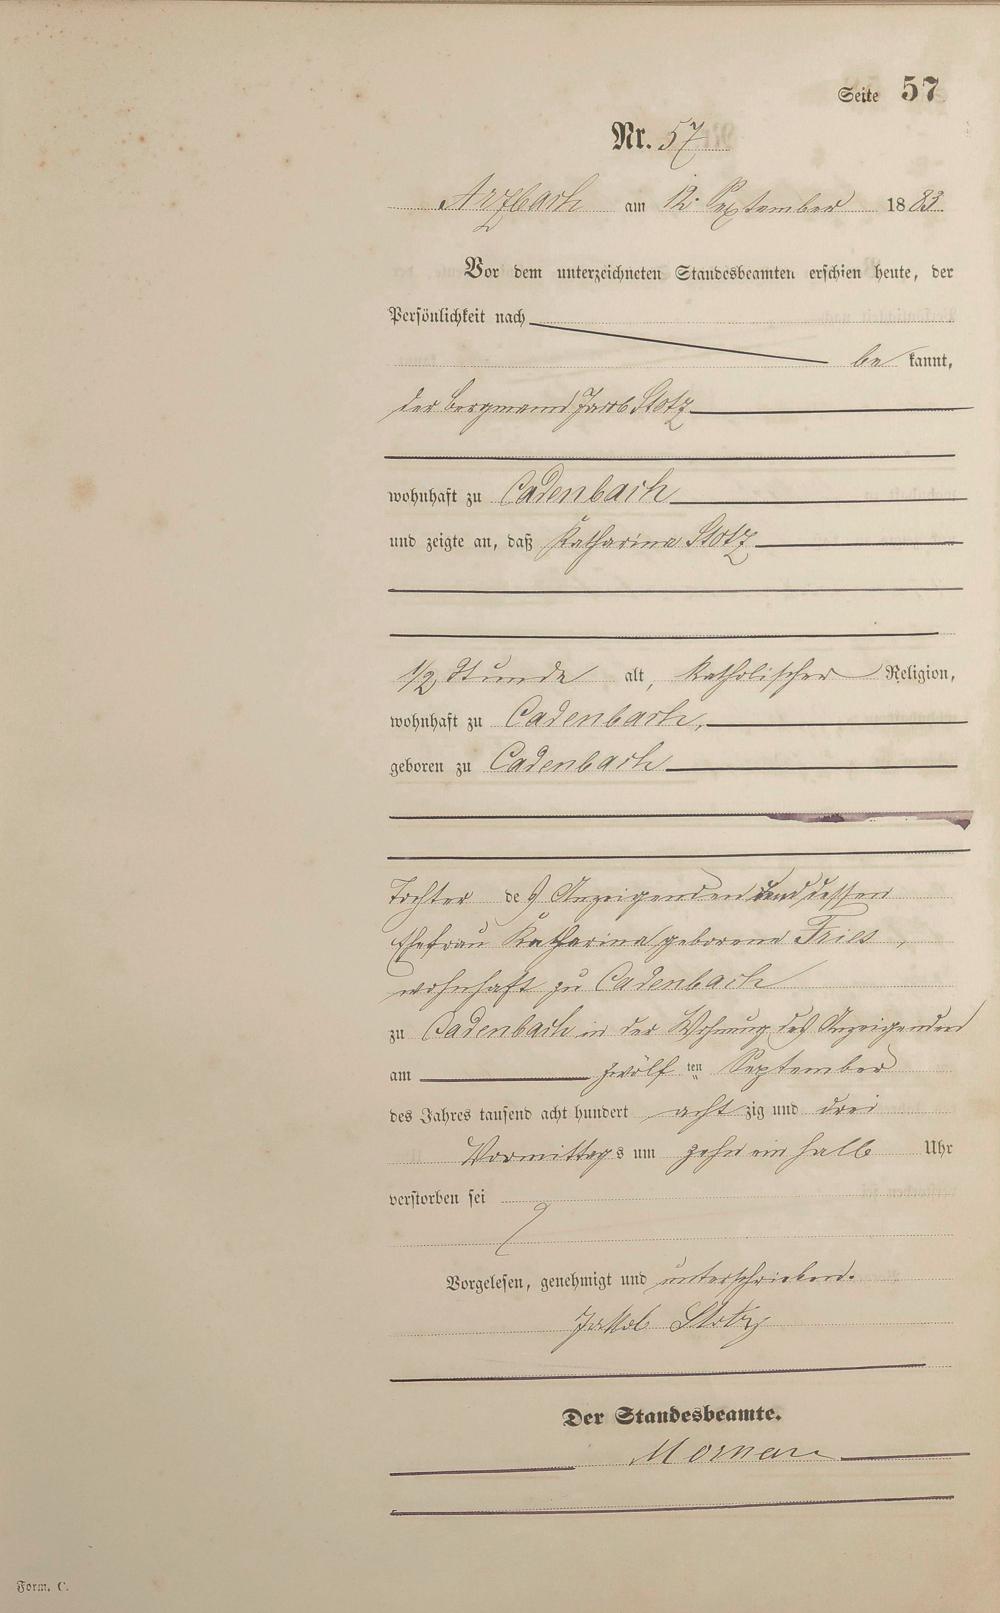 Seite 57
Nr. 57
Arzbach am 12. September 1883
Vor dem unterzeichneten Standesbeamten erschien heute, der
Persönlichkeit nach
be kannt,
der Bergmann Jacob Stotz
wohnhaft zu Cadenbach
und zeigte an, daß Katharina Stotz
1/2 Stunde alt, katholischer Religion,
wohnhaft zu Cadenbach,
geboren zu Cadenbach
Tochter des Anzeigenden und dessen
Ehefrau Katharina geborene Fries,
wohnhaft zu Cadenbach
zu Cadenbach in der Wohnung des Anzeigenden
am zwölf ten September
des Jahres tausend acht hundert acht zig und drei
Vormittags um zehn ein halb Uhr
verstorben sei
Vorgelesen, genehmigt und unterschrieben.
Jakob Stotz
Der Standesbeamte.
Form. C.